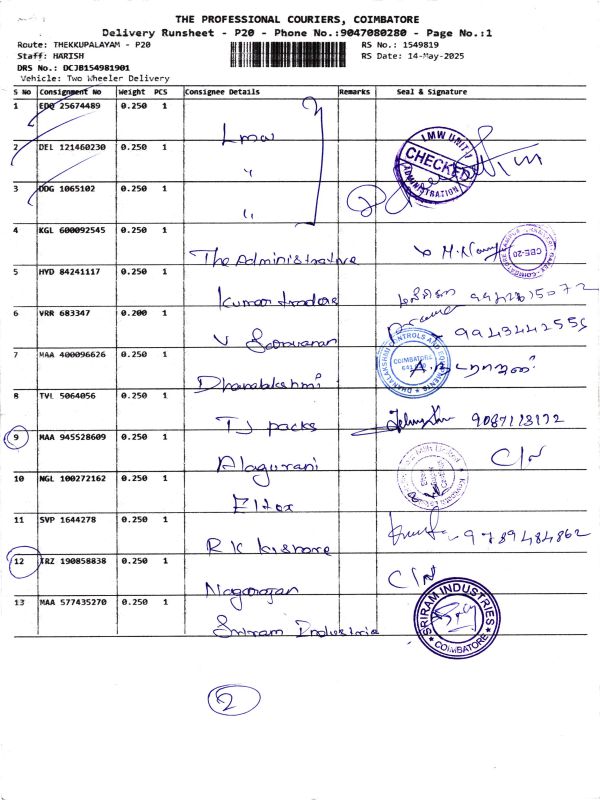 THE PROFESSIONAL COURIERS, COIMBATORE
Delivery Runsheet - P20 - Phone No.:9047080280 - Page No.:1
Route: THEKKUPALAYAM - P20
RS No.: 1549819
Staff: HARISH
RS Date: 14-May-2025
DRS No.: DCJB154981901
Vehicle: Two Wheeler Delivery
S No Consignment No Weight PCS Consignee Details Remarks Seal & Signature
1 EDQ 25674489 0.250 1
Lmw
LMW UNIT 1
CHECKED
ADMINISTRATION
2 DEL 121460230 0.250 1
"
3 DDG 1065102 0.250 1
"
4 KGL 600092545 0.250 1
The Administrative
CBE-20
5 HYD 84241117 0.250 1
Kumar traders
6 VRR 683347 0.200 1
V Saravanan
9943442555
7 MAA 400096626 0.250 1
Dhanalakshmi
DHANALAKSHMI CONTROLS AND EQUIPMENTS
COIMBATORE
8 TVL 5064056 0.250 1
TJ packs
9087113172
9 MAA 945528609 0.250 1
Alagurani
C/N
10 NGL 100272162 0.250 1
Eltex
11 SVP 1644278 0.250 1
R K Kishore
9789484862
12 TRZ 190858838 0.250 1
Nagarajan
C/N
13 MAA 577435270 0.250 1
Sriram Industries
SRIRAM INDUSTRIES
COIMBATORE
2